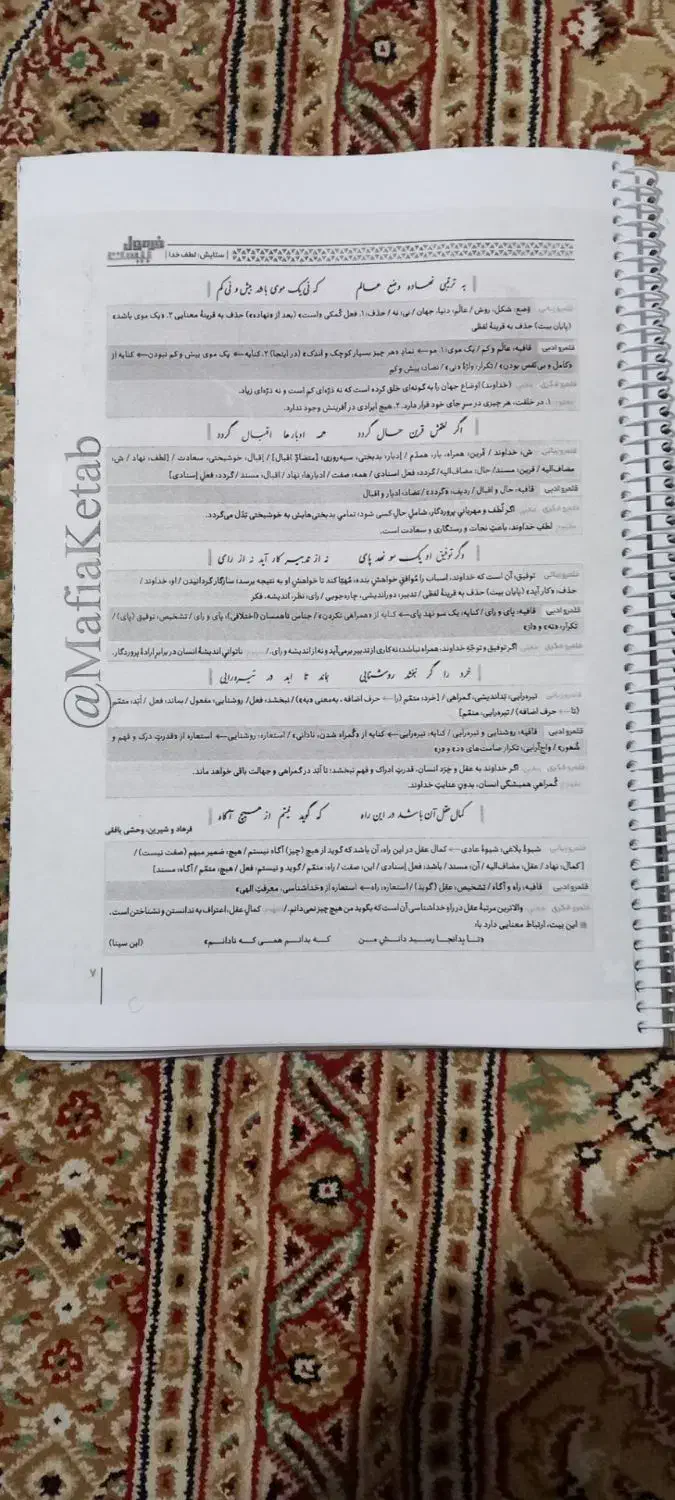 فرمول بیست | ستایش: لطف خدا |
به ترتیبی نهاده وضع عالم که نی یک موی باشد بیش و نی کم
قلمرو زبانی وضع: شکل، روش / عالَم: دنیا، جهان / نی: نه / حذف: ۱. فعل کمکی «است» (بعد از «نهاده») حذف به قرینهٔ معنایی ۲. «یک موی باشد»
(پایان بیت) حذف به قرینهٔ لفظی
قلمرو ادبی قافیه: عالَم و کم / یک موی: ۱. مو← نمادِ «هر چیز بسیار کوچک و اندک» (در اینجا) ۲. کنایه← یک موی بیش و کم نبودن← کنایه از
«کامل و بی‌نقص بودن» / تکرار: واژهٔ «نی» / تضاد: بیش و کم
قلمرو فکری معنی: (خداوند) اوضاع جهان را به گونه‌ای خلق کرده است که نه ذرّه‌ای کم است و نه ذرّه‌ای زیاد.
مفهوم: ۱. در خلقت، هر چیزی در سرِ جای خود قرار دارد. ۲. هیچ ایرادی در آفرینش وجود ندارد.
اگر لطفش قرین حال گردد همه ادبارها اقبال گردد
قلمرو زبانی ش: خداوند / قَرین: همراه، یار، همدَم / اِدبار: بدبختی، سیه‌روزی؛ [متضادِّ اقبال] / اِقبال: خوشبختی، سعادت / [لطف: نهاد / ش:
مضاف‌الیه / قرین: مسند/ حال: مضاف‌الیه/ گردد: فعل اسنادی / همه: صفت / ادبارها: نهاد / اقبال: مسند / گردد: فعلِ اِسنادی]
قلمرو ادبی قافیه: حال و اقبال / ردیف: «گردد»/ تضاد: ادبار و اقبال
قلمرو فکری معنی: اگر لُطف و مهربانیِ پروردگار، شاملِ حالِ کسی شود؛ تمامیِ بدبختی‌هایش به خوشبختی بَدَل می‌گردد.
مفهوم: لطفِ خداوند، باعثِ نجات و رستگاری و سعادت است.
وگر توفیق او یک سو نهد پای نه از تدبیر کار آید نه از رای
قلمرو زبانی توفیق: آن است که خداوند، اسباب را مُوافقِ خواهشِ بنده، مُهیّا کند تا خواهشِ او به نتیجه برسد؛ سازگار گردانیدن / او: خداوند /
حذف: «کار آید» (پایان بیت) حذف به قرینهٔ لفظی / تدبیر: دوراندیشی، چاره‌جویی / رای: نظر، اندیشه، فکر
قلمرو ادبی قافیه: پای و رای / کنایه: یک سو نهد پای← کنایه از «همراهی نکردن»/ جناس ناهمسان (اختلافی): پای و رای / تشخیص: توفیق (پای) /
تکرار: «نه» و «از»
قلمرو فکری معنی: اگر توفیق و توجّهِ خداوند، همراه نباشد؛ نه کاری از تدبیر برمی‌آید و نه از اندیشه و رای. / مفهوم: ناتوانیِ اندیشهٔ انسان در برابرِ ارادهٔ پروردگار.
خرد را گر نبخشد روشنایی بماند تا ابد در تیره‌رایی
قلمرو زبانی تیره‌رایی: بَداندیشی، گمراهی / [خرد: متمّم (را← حرف اضافه، به‌معنی «به») / نبخشد: فعل/ روشنایی: مفعول / بماند: فعل / اَبَد: متمّم
(تا← حرف اضافه) / تیره‌رایی: متمّم]
قلمرو ادبی قافیه: روشنایی و تیره‌رایی / کنایه: تیره‌رایی← کنایه از «گُمراه شدن، نادانی» / استعاره: روشنایی← استعاره از «قدرتِ درک و فهم و
شُعور» / واج‌آرایی: تکرار صامت‌های «د» و «ر»
قلمرو فکری معنی: اگر خداوند به عقل و خِرَد انسان، قدرتِ ادراک و فهم نبخشد؛ تا اَبَد در گمراهی و جهالت باقی خواهد ماند.
مفهوم: گُمراهیِ همیشگی انسان، بدونِ عنایتِ خداوند.
کمال عقل آن باشد در این راه که گوید نیستم از هیچ آگاه
فرهاد و شیرین، وحشی بافقی
قلمرو زبانی شیوهٔ بلاغی: شیوهٔ عادی← کمال عقل در این راه، آن باشد که گوید از هیچ (چیز) آگاه نیستم / هیچ: ضمیر مبهم (صفت نیست) /
[کمال: نهاد / عقل: مضاف‌الیه / آن: مسند / باشد: فعل اِسنادی / این: صفت / راه: متمّم / گوید و نیستم: فعل / هیچ: متمّم / آگاه: مسند]
قلمرو ادبی قافیه: راه و آگاه / تشخیص: عقل (گوید) / استعاره: راه← استعاره از «خداشناسی، معرفتِ الهی»
قلمرو فکری معنی: والاترین مرتبهٔ عقل در راهِ خداشناسی آن است که بگوید من هیچ چیز نمی‌دانم. / مفهوم: کمالِ عقل، اعتراف به ندانستن و نشناختن است.
این بیت، ارتباط معنایی دارد با:
«تا بدانجا رسید دانش من که بدانم همی که نادانم» (ابن سینا)
۷
@MafiaKetab